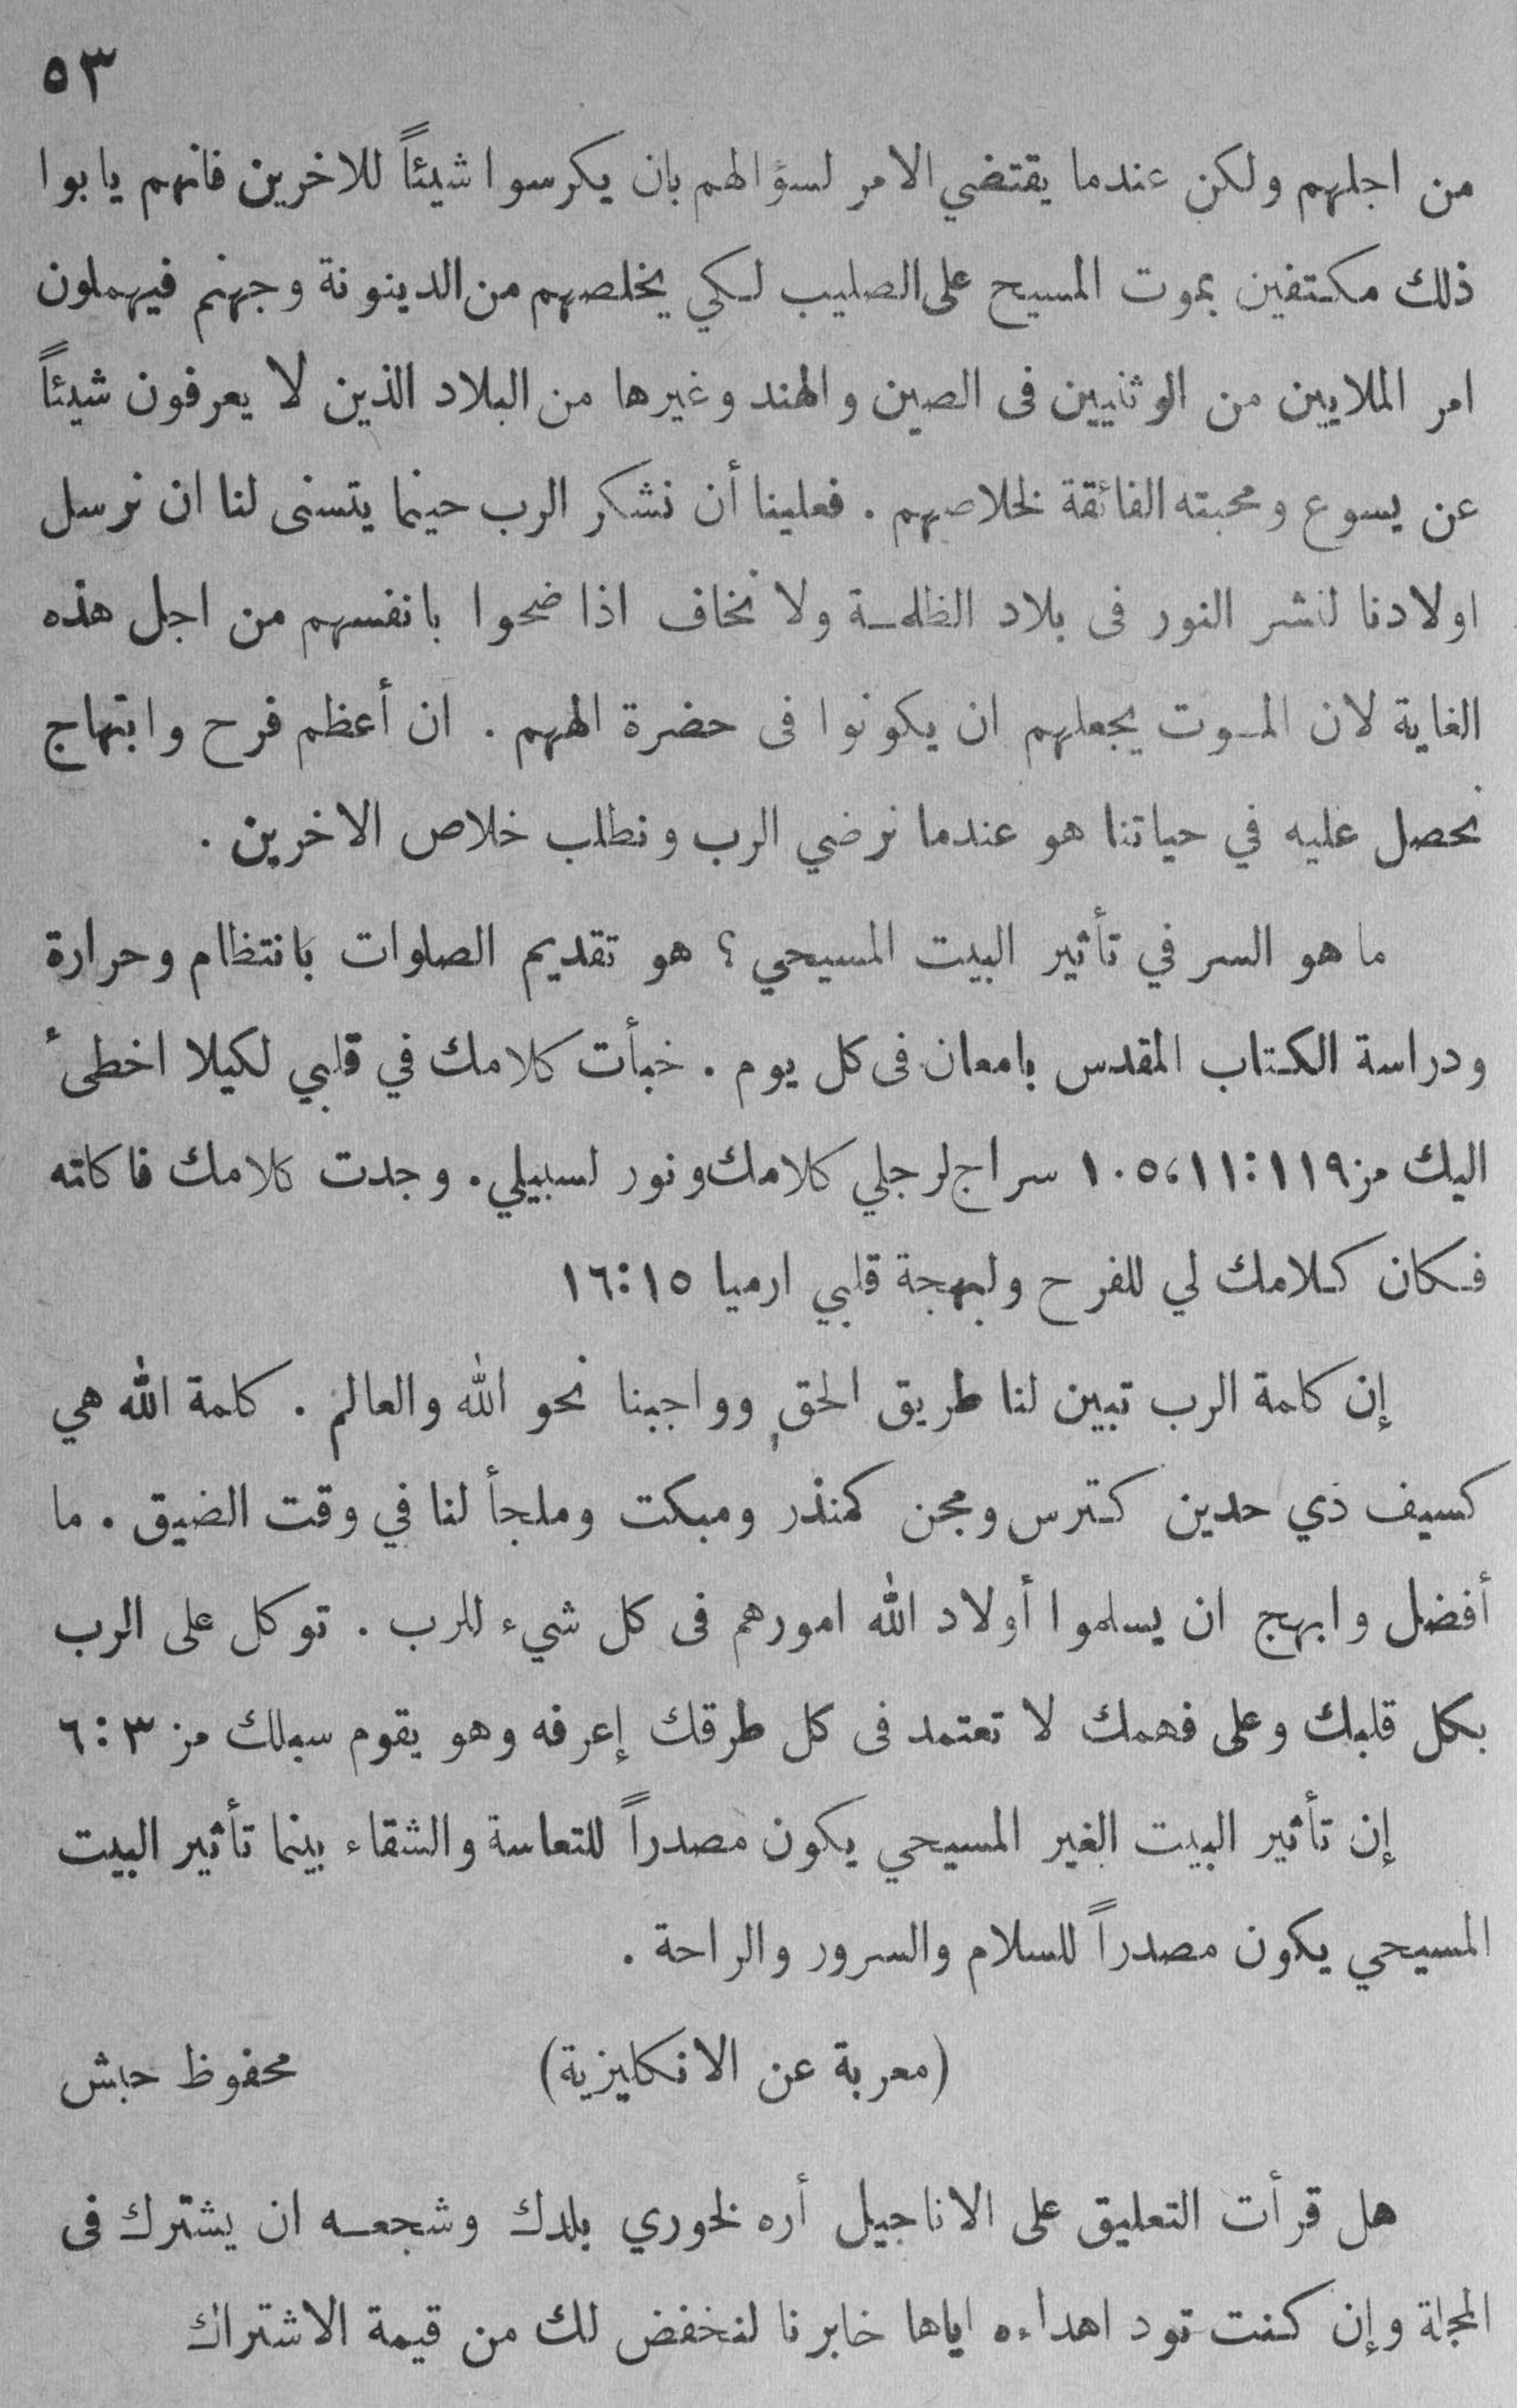 ٥٣
من اجلهم ولكن عندما يقتضي الامر لسؤالهم بان يكرسوا شيئاً للاخرين فانهم يابوا
ذلك مكتفين بموت المسيح على الصليب لكي يخلصهم من الدينونة وجهنم فيهملون
امر الملايين من الوثنيين فى الصين والهند وغيرها من البلاد الذين لا يعرفون شيئاً
عن يسوع ومحبته الفائقة لخلاصهم . فعلينا أن نشكر الرب حينما يتسنى لنا ان نرسل
اولادنا لنشر النور فى بلاد الظلمـة ولا نخاف اذا ضحوا بانفسهم من اجل هذه
الغاية لان المـوت يجعلهم ان يكونوا فى حضرة الههم . ان أعظم فرح وابتهاج
نحصل عليه في حياتنا هو عندما نرضي الرب ونطلب خلاص الاخرين .
ما هو السر في تأثير البيت المسيحي ؟ هو تقديم الصلوات بانتظام وحرارة
ودراسة الكتاب المقدس بامعان فى كل يوم . خبأت كلامك في قلبي لكيلا اخطىٔ
اليك مز ١١٩:١١،١٠٥ سراج لرجلي كلامك ونور لسبيلي. وجدت كلامك فاكلته
فـكان كـلامك لي للفرح ولبهجة قلبي ارميا ١٥:١٦
إن كلمة الرب تبين لنا طريق الحق وواجبنا نحو الله والعالم . كلمة الله هي
كسيف ذي حدين كترس ومجن كمنذر ومبكت وملجأ لنا في وقت الضيق . ما
أفضل وابهج ان يسلموا أولاد الله امورهم فى كل شيء للرب . توكل على الرب
بكل قلبك وعلى فهمك لا تعتمد فى كل طرقك إعرفه وهو يقوم سبلك مز ٣:٦
إن تأثير البيت الغير المسيحي يكون مصدراً للتعاسة والشقاء بينما تأثير البيت
المسيحي يكون مصدراً للسلام والسرور والراحة .
(معربة عن الانكليزية) محفوظ حبش
هل قرأت التعليق على الاناجيل أره لخوري بلدك وشجعـه ان يشترك فى
المجلة وإن كنت تود اهداءه اياها خابرنا لنخفض لك من قيمة الاشتراك